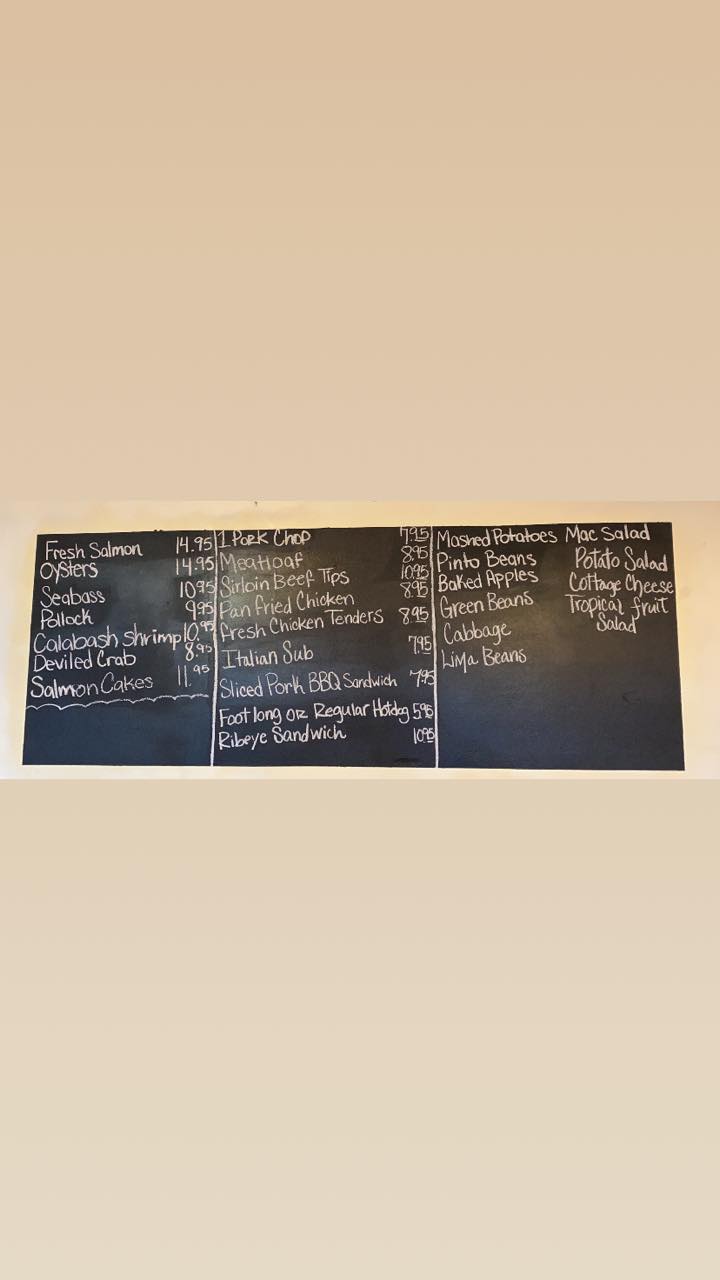 Fresh Salmon 14.95
Oysters 14.95
Seabass 10.95
Pollock 9.95
Calabash shrimp 10.95
Deviled Crab 8.95
Salmon Cakes 11.95
1 Pork Chop 7.95
Meatloaf 8.95
Sirloin Beef Tips 10.95
Pan Fried Chicken 8.95
Fresh Chicken Tenders 8.95
Italian Sub 7.95
Sliced Pork BBQ Sandwich 7.95
Foot long or Regular Hotdog 5.95
Ribeye Sandwich 10.95
Mashed Potatoes
Pinto Beans
Baked Apples
Green Beans
Cabbage
Lima Beans
Mac Salad
Potato Salad
Cottage Cheese
Tropical fruit
Salad